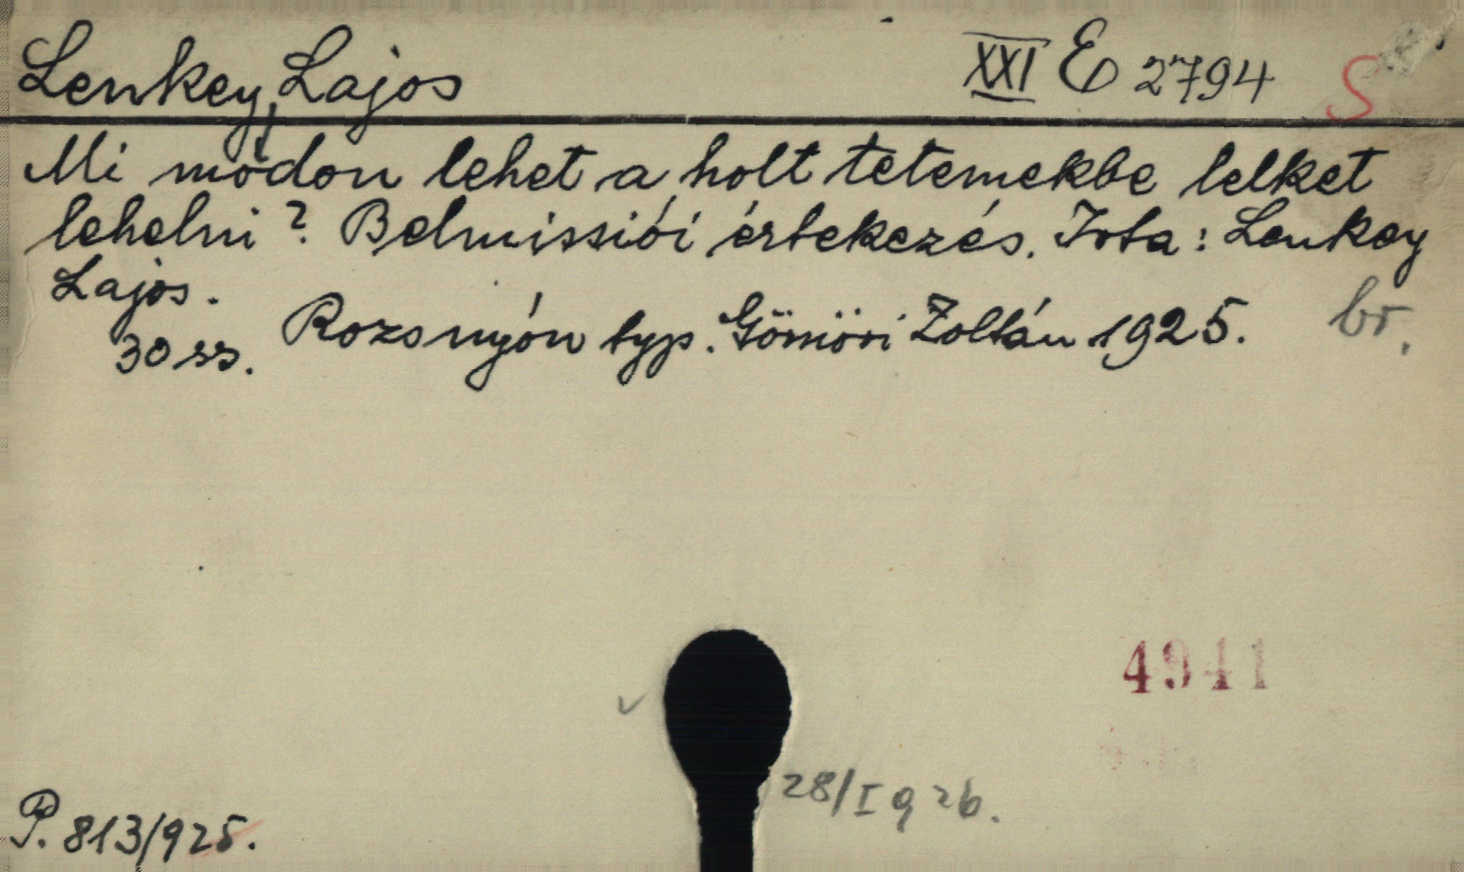 Lenkey, Lajos XXI E 2794 S
Mi módon lehet a holt tetemekbe lelket
lehelni? Belmissiói értekezés. Irta: Lenkey
Lajos. br.
Rozsnyón typ. Gömöri Zoltán 1925.
30 ss.
4941
28/I 926.
P. 813/925.